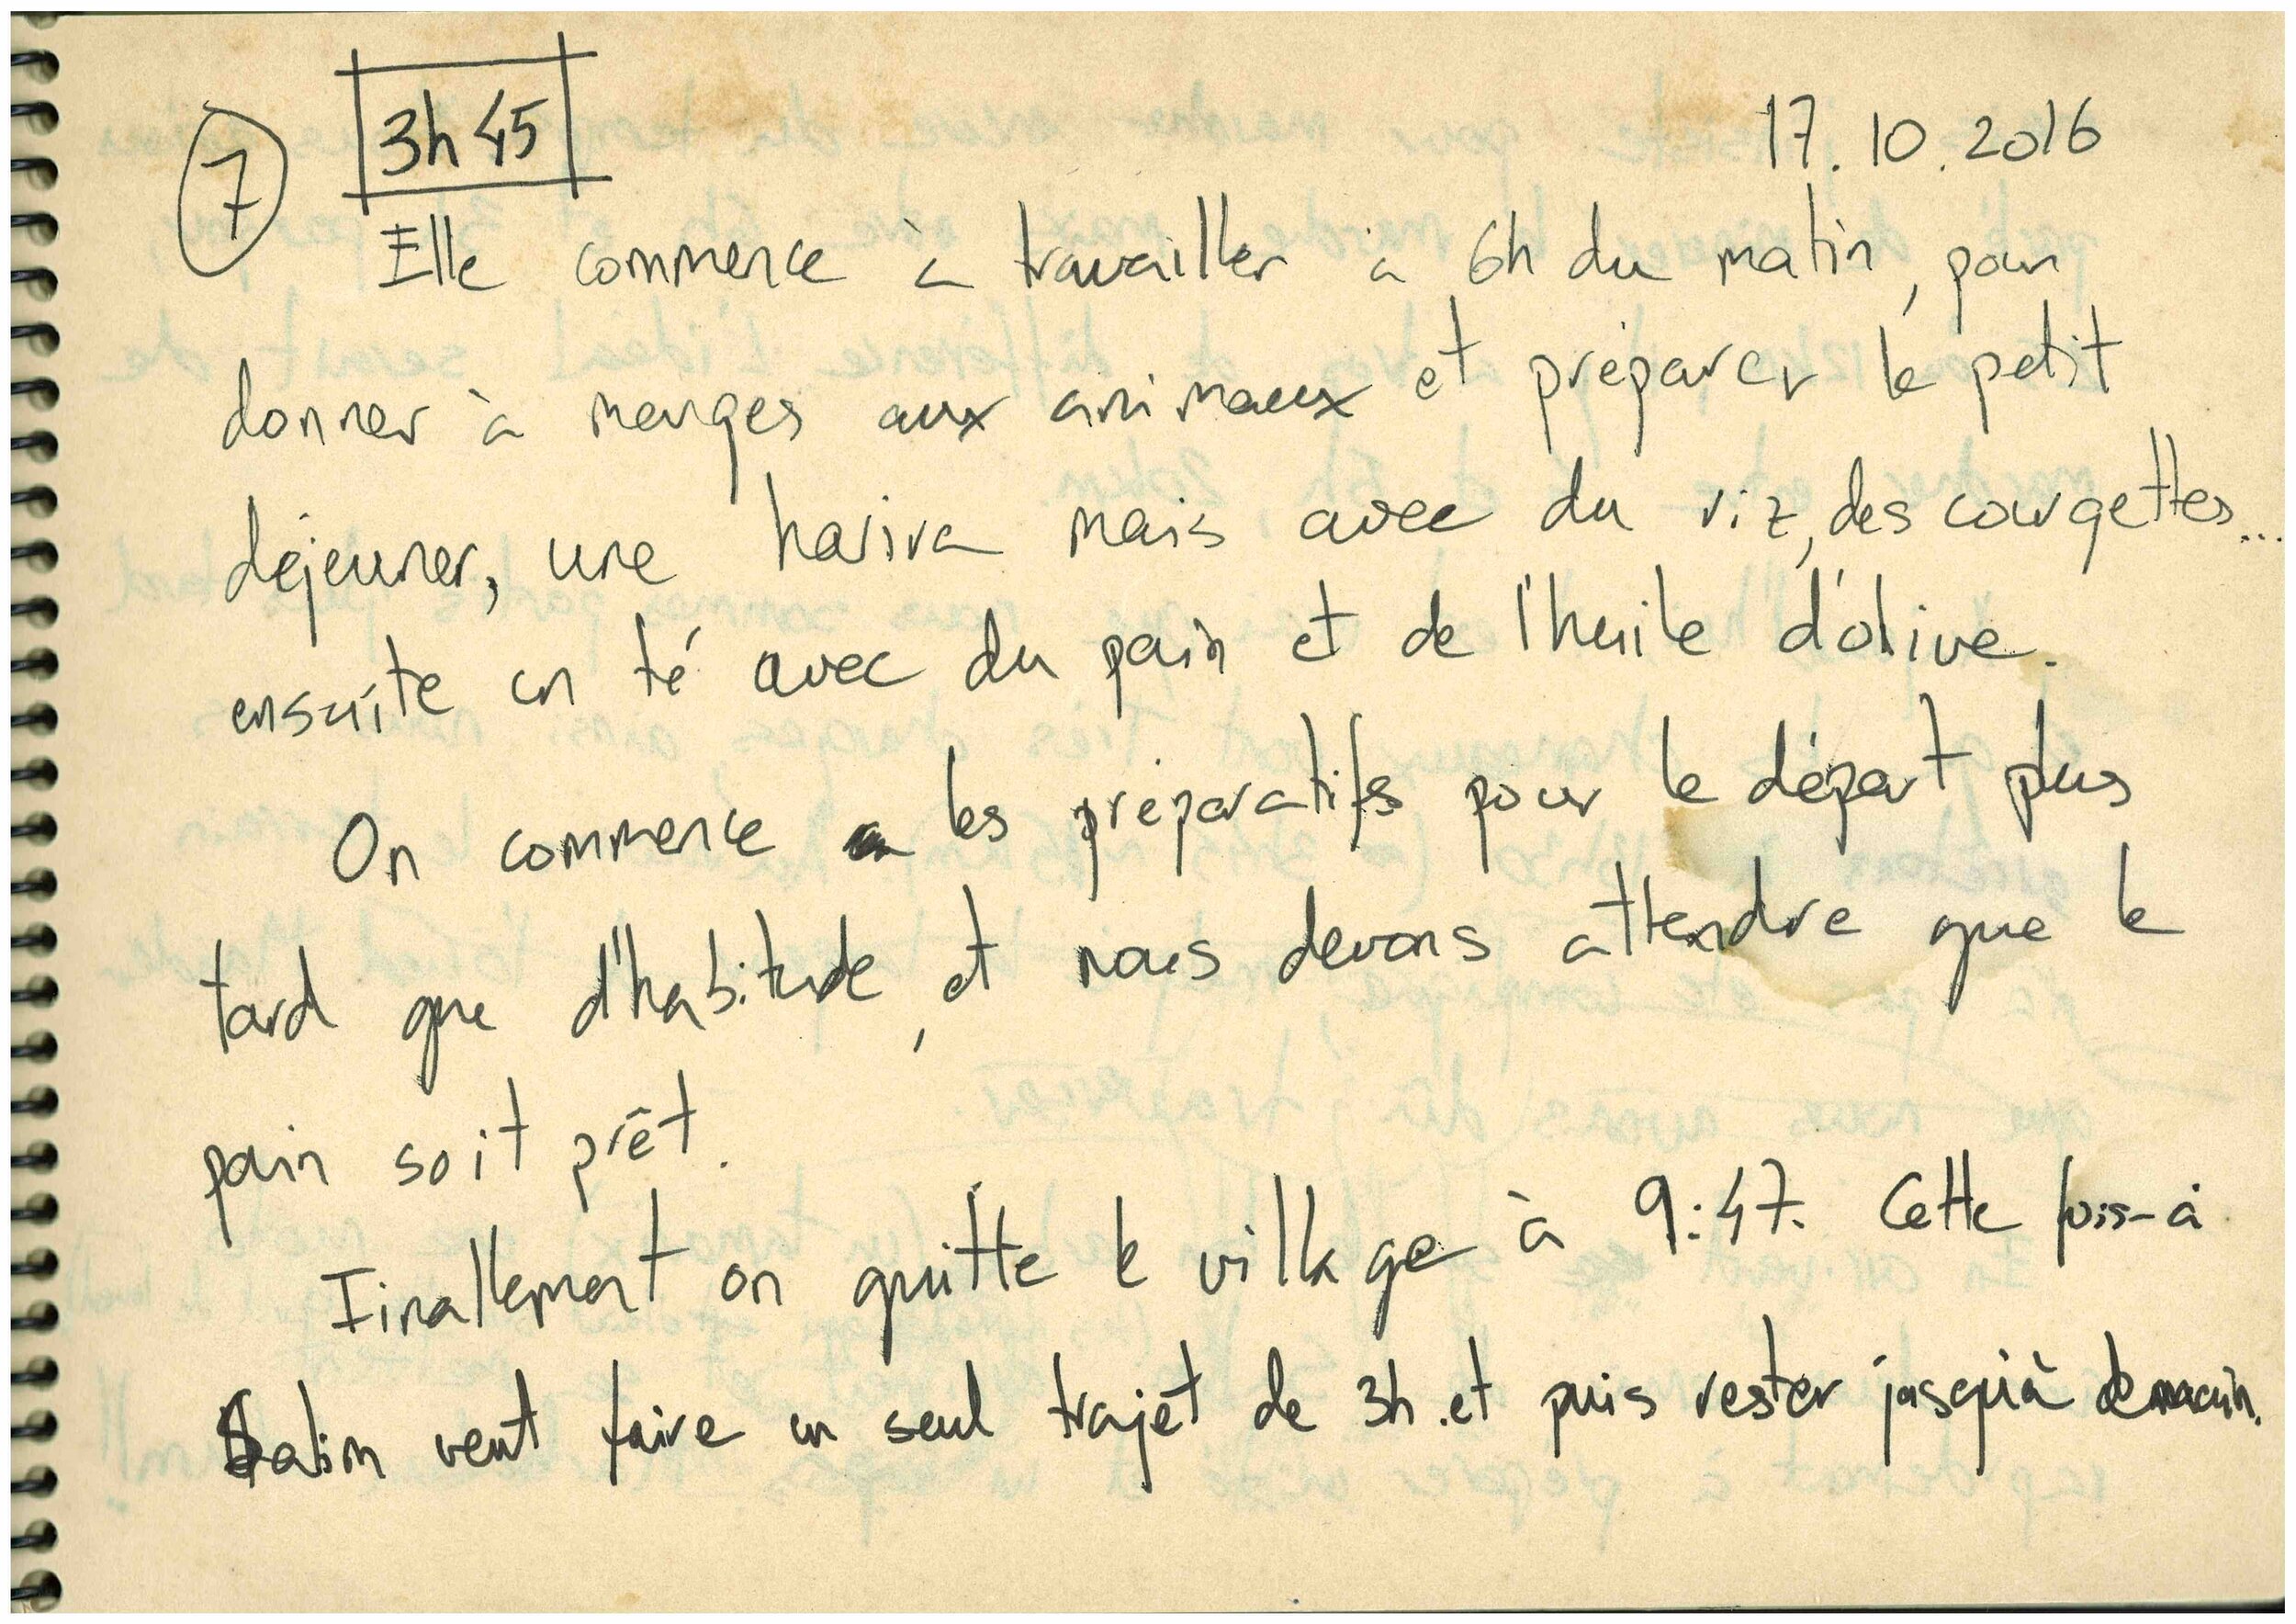 7 3h 45 17.10.2016
Elle commence à travailler a 6h du matin, pour
donner à manges aux animaux et préparer le petit
déjeuner, une harira mais avec du riz, des courgettes...
ensuite un té avec du pain et de l'huile d'olive.
On commence les préparatifs pour le départ plus
tard que d'habitude, et nous devons attendre que le
pain soit prêt.
Finallement on quitte le village à 9:47. Cette fois-à
veut faire un seul trajet de 3h. et puis rester jusqu'à demain.